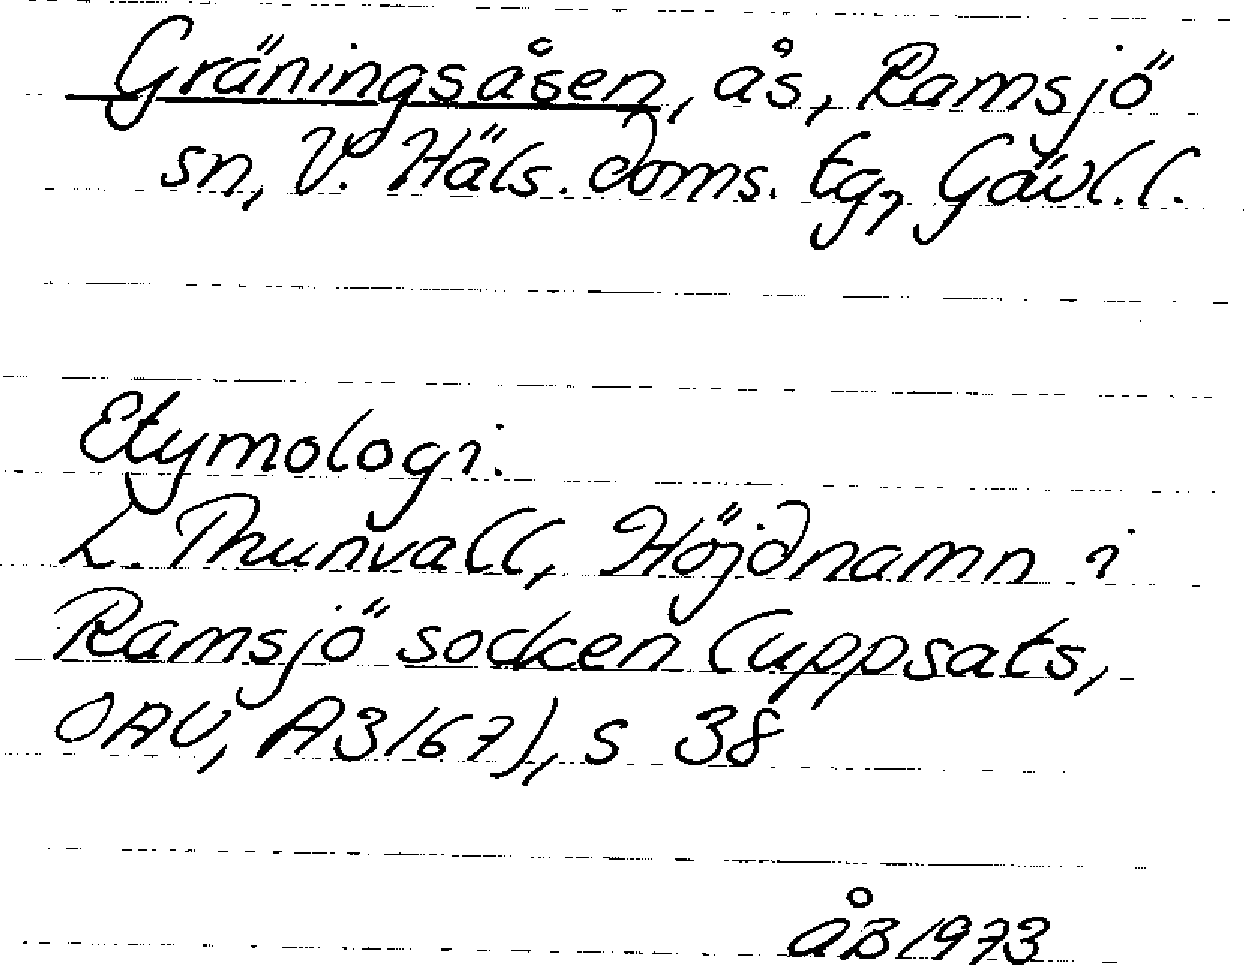 Gräningsåsen, ås, Ramsjö
sn, V. Häls. doms. tg, Gävl.l.
Etymologi.
L. Thunvall, Höjdnamn i
Ramsjö socken (uppsats,
OAU, A3167), s 38
ÅB 1973